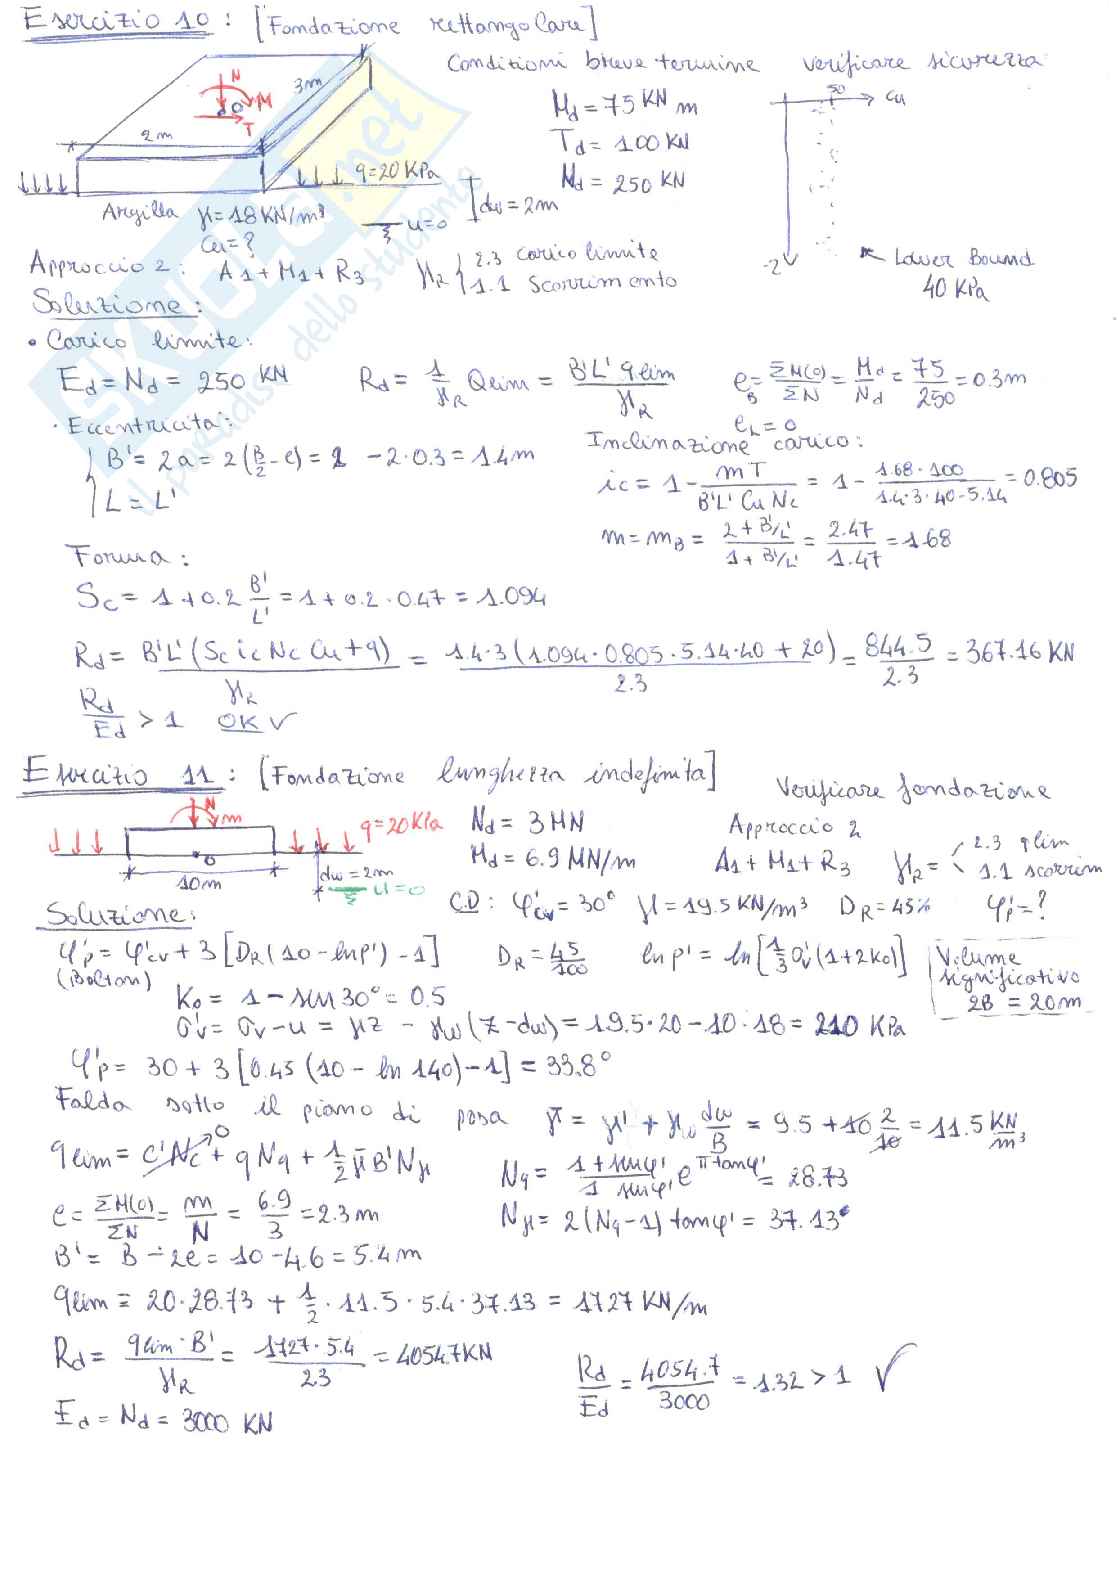 Esercizio 10 : [Fondazione rettangolare]
Condizioni breve termine verificare sicurezza
N
M
O
T
3m
2m
Md = 75 KN m
Td = 100 KN
Nd = 250 KN
50
cu
-2
Lower Bound
40 KPa
q=20 KPa
dw = 2m
u=0
Argilla γ=18 KN/m³
Cu=?
Approccio 2: A1+M1+R3 γR { 2.3 carico limite
1.1 Scorrimento
Soluzione:
• Carico limite:
Ed = Nd = 250 KN Rd = 1/γR Qlim = B'L' qlim/γR eB = ΣM(O)/ΣN = Md/Nd = 75/250 = 0.3m
eL = 0
· Eccentricità:
B' = 2a = 2(B/2 - e) = 2 - 2·0.3 = 1.4m
L = L'
Inclinazione carico:
ic = 1 - mT/B'L' Cu Nc = 1 - 1.68·100/1.4·3·40·5.14 = 0.805
m = mB = 2+B'/L'/1+B'/L' = 2.47/1.47 = 1.68
Forma:
Sc = 1+0.2 B'/L' = 1+0.2·0.47 = 1.094
Rd = B'L'(Sc ic Nc Cu+q)/γR = 1.4·3(1.094·0.805·5.14·40+20)/2.3 = 844.5/2.3 = 367.16 KN
Rd/Ed > 1 OK ✓
Esercizio 11 : [Fondazione lunghezza indefinita]
Verificare fondazione
N
m
q=20 KPa
O
10m
dw = 2m
u=0
Nd = 3 MN
Md = 6.9 MN/m
Approccio 2
A1+M1+R3 γR = 2.3 qlim
1.1 scorrim
C.D: φ'cv = 30° γ=19.5 KN/m³ DR=45% φ'p=?
Soluzione:
φ'p = φ'cv + 3 [DR(10 - lnp') - 1] DR = 45/100 lnp' = ln[1/3 σ'v(1+2K0)]
(Bolton)
Volume
significativo
2B = 20m
K0 = 1 - sin30° = 0.5
σ'v = σv - u = γz - γw(z-dw) = 19.5·20 - 10·18 = 210 KPa
φ'p = 30 + 3[0.45(10 - ln 140) - 1] = 33.8°
Falda sotto il piano di posa γ̄ = γ' + γw dw/B = 9.5 + 10 2/10 = 11.5 KN/m³
qlim = c'Nc→0 + qNq + 1/2 γ̄ B'Nγ
Nq = 1+sinφ'/1 sinφ' e^πtanφ' = 28.73
e = ΣM(O)/ΣN = m/N = 6.9/3 = 2.3m
Nγ = 2(Nq-1)tanφ' = 37.13
B' = B - 2e = 10 - 4.6 = 5.4m
qlim = 20·28.73 + 1/2·11.5·5.4·37.13 = 1727 KN/m
Rd = qlim·B'/γR = 1727·5.4/23 = 4054.7KN
Rd/Ed = 4054.7/3000 = 1.32 > 1 ✓
Ed = Nd = 3000 KN
SKUOLA.net
il paradiso dello studente